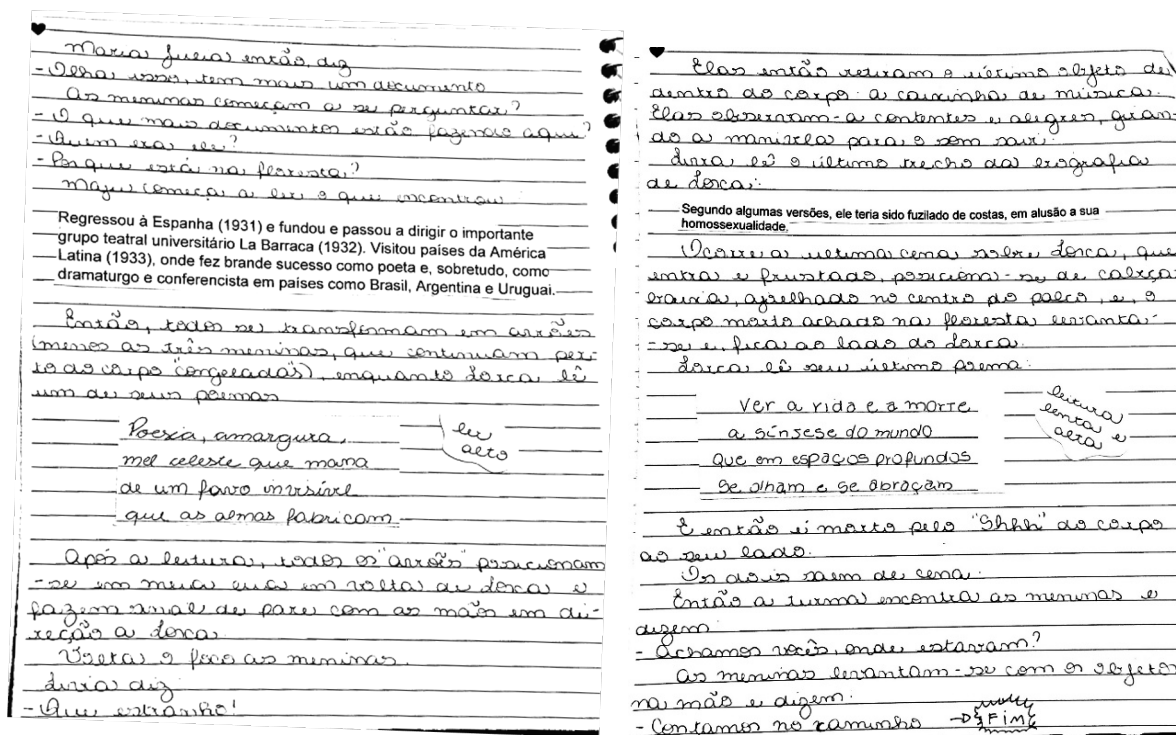 Maria Júlia então, diz
- Olha isso, tem mais um documento
As meninas começam a se perguntar?
- O que mais documentos estão fazendo aqui?
- Quem era ele?
- Por que está na floresta?
Maju começa a ler o que encontrou
Regressou à Espanha (1931) e fundou e passou a dirigir o importante
grupo teatral universitário La Barraca (1932). Visitou países da América
Latina (1933), onde fez brande sucesso como poeta e, sobretudo, como
dramaturgo e conferencista em países como Brasil, Argentina e Uruguai.
Então, todos se transformam em arrões
(menos as três meninas, que continuam per-
to do corpo "congeladas"), enquanto Lorca lê
um de seus poemas
Poesia, amargura,
mel celeste que mana
de um favo invisível
que as almas fabricam
ler
alto
Após a leitura, todos os "arrões" posicionam
-se em meia lua em volta de Lorca e
fazem sinal de pare com as mãos em di-
reção a Lorca
Volta o foco as meninas.
Livia diz
- Que estranho!
Elas então retiram o último objeto de
dentro do corpo: a caixinha de música.
Elas observam-a contentes e alegres, giran-
do a manivela para o som sair.
Livia lê o último trecho da biografia
de Lorca:
Segundo algumas versões, ele teria sido fuzilado de costas, em alusão a sua
homossexualidade.
Ocorre a ultima cena sobre Lorca, que
entra e frustado, posiciona-se de cabeça
baixa, ajoelhado no centro do palco, e, o
corpo morto achado na floresta levanta-
-se e, fica ao lado do Lorca.
Lorca lê seu último poema:
Ver a vida e a morte
a sínsese do mundo
que em espaços profundos
se olham e se abraçam
leitura
lenta e
alta
E então é morto pelo "Shhh" do corpo
ao seu lado.
Os dois saem de cena.
Então a turma encontra as meninas e
dizem
- Achamos vocês, onde estavam?
As meninas levantam-se com os objetos
na mão e dizem:
- Contamos no caminho → FIM